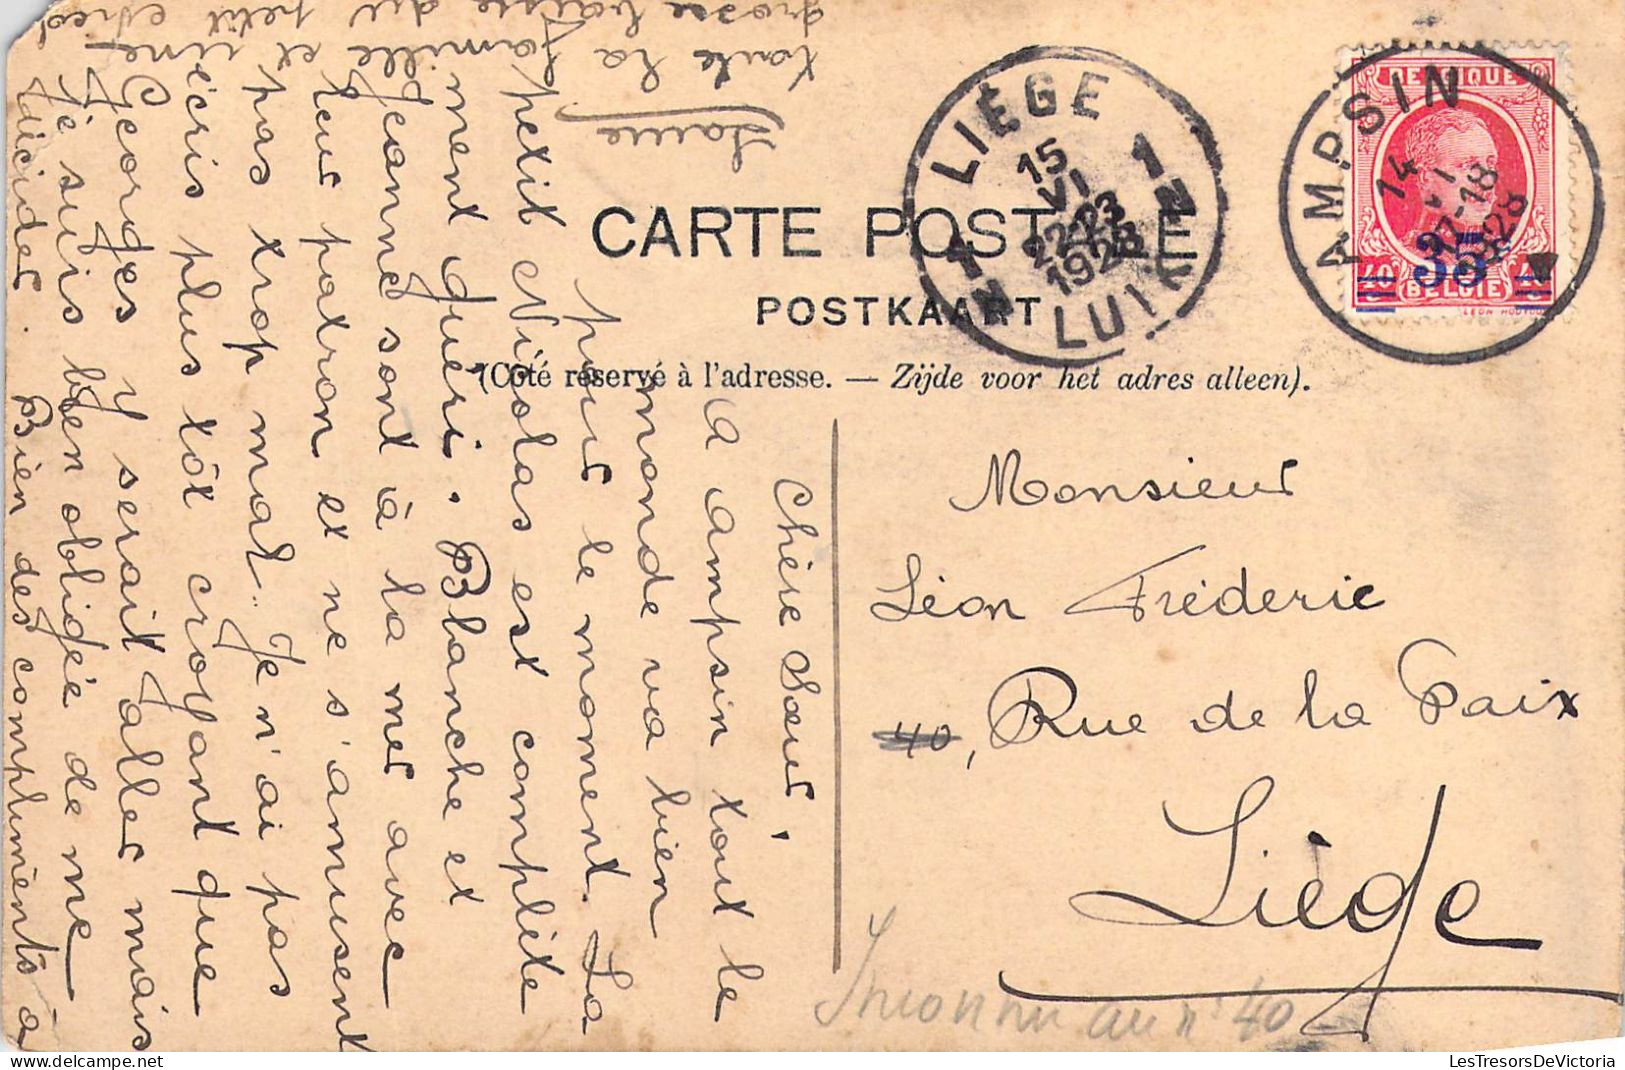 CARTE POSTALE
POSTKAART
(Côté réservé à l'adresse. — Zijde voor het adres alleen).
LIÈGE 1
1N
15
VI
22-23
1928
LUIK
AMPSIN
14
VI
17-18
1928
BELGIQUE
35
40 BELGIE 40
Monsieur
Léon Fréderic
40, Rue de la Paix
Liège
Inconnu au n° 40
Chère Sœur,
A Ampsin tout le
monde va bien
pour le moment. La
petit Nicolas est complète
ment guéri. Blanche et
Jeanne sont à la mer avec
leur patron et ne s'amusent
pas trop mal. Je n'ai pas
écris plus tôt croyant que
Georges y serait aller mais
je suis bien obligée de me
décider. Bien des compliments à
toute la famille et une
grosse baise du petit
LesTresorsDeVictoria.com